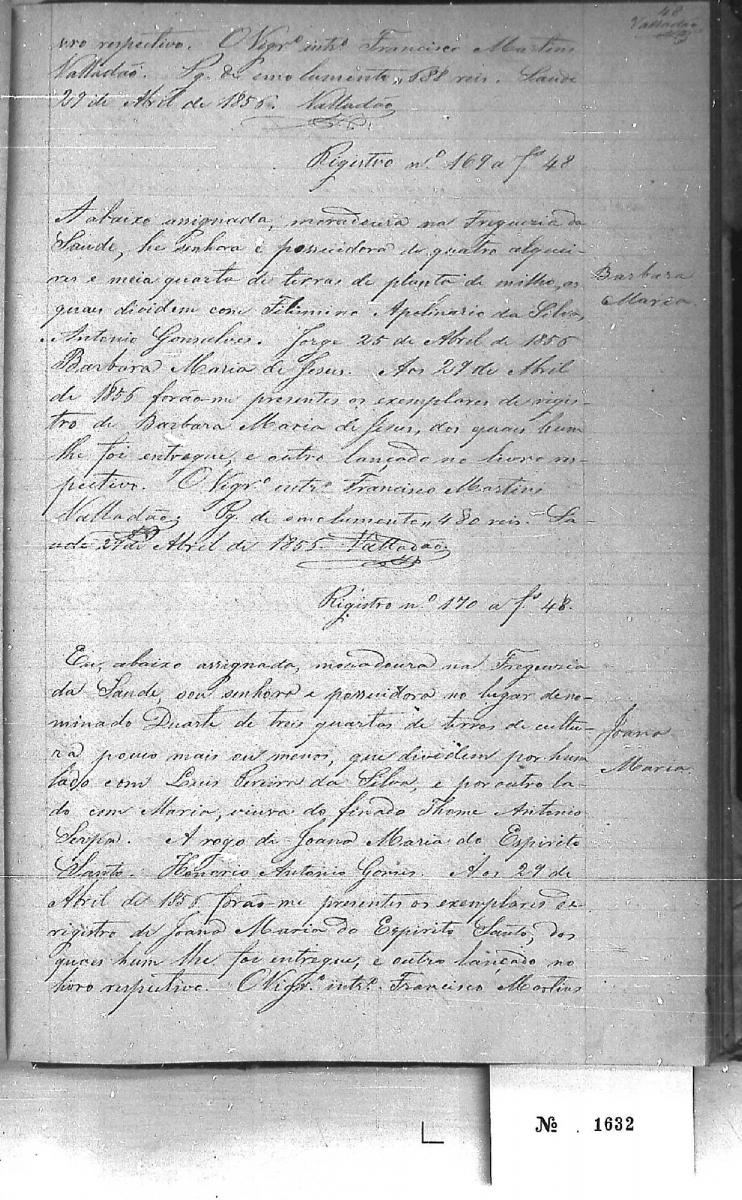 48
Valladão
vro respectivo. O Vigrº intrº Francisco Martins
Valladão. Pg. de emolumento, 688 reis. Saude
29 de Abril de 1856. Valladão
Registro nº 169 a fs 48
A abaixo assignada, moradoura na Freguezia da
Saude, he senhora e possuidora de quatro alquei-
res e meia quarta de terras de planta de milho, os
quais dividem com Filimino Apolinario da Silva,
Antonio Gonsalves. Jorge 25 de Abril de 1856
Barbara Maria de Jesus. Aos 29 de Abril
de 1856 forão-me presentes os exemplares de regis-
tro de Barbara Maria de Jesus, dos quaes hum
lhe foi entregue, e outro lançado no livro res-
pectivo. O Vigrº intrº Francisco Martins
Valladão. Pg. de emolumento, 480 reis. Sa
ude 29 de Abril de 1856. Valladão
Barbara
Maria
Registro nº 170 a fs 48.
Eu, abaixo assignada, moradoura na Freguezia
da Saude, sou senhora e possuidora no lugar deno-
minado Duarte de tres quartas de terras de cultu-
ra pouco mais ou menos, que dividem por hum
lado com Luis Pereira da Silva, e por outro la-
do com Maria, viuva do finado Thome Antonio
Serpa. A rogo de Joana Maria do Espirito
Santo. Honorio Antonio Gomes. Aos 29 de
Abril de 1856 forão-me presentes os exemplares de
registro de Joana Maria do Espirito Santo, dos
quaes hum lhe foi entregue, e outro lançado no
livro respectivo. O Vigrº intrº Francisco Martins
Joana
Maria
Nº 1632